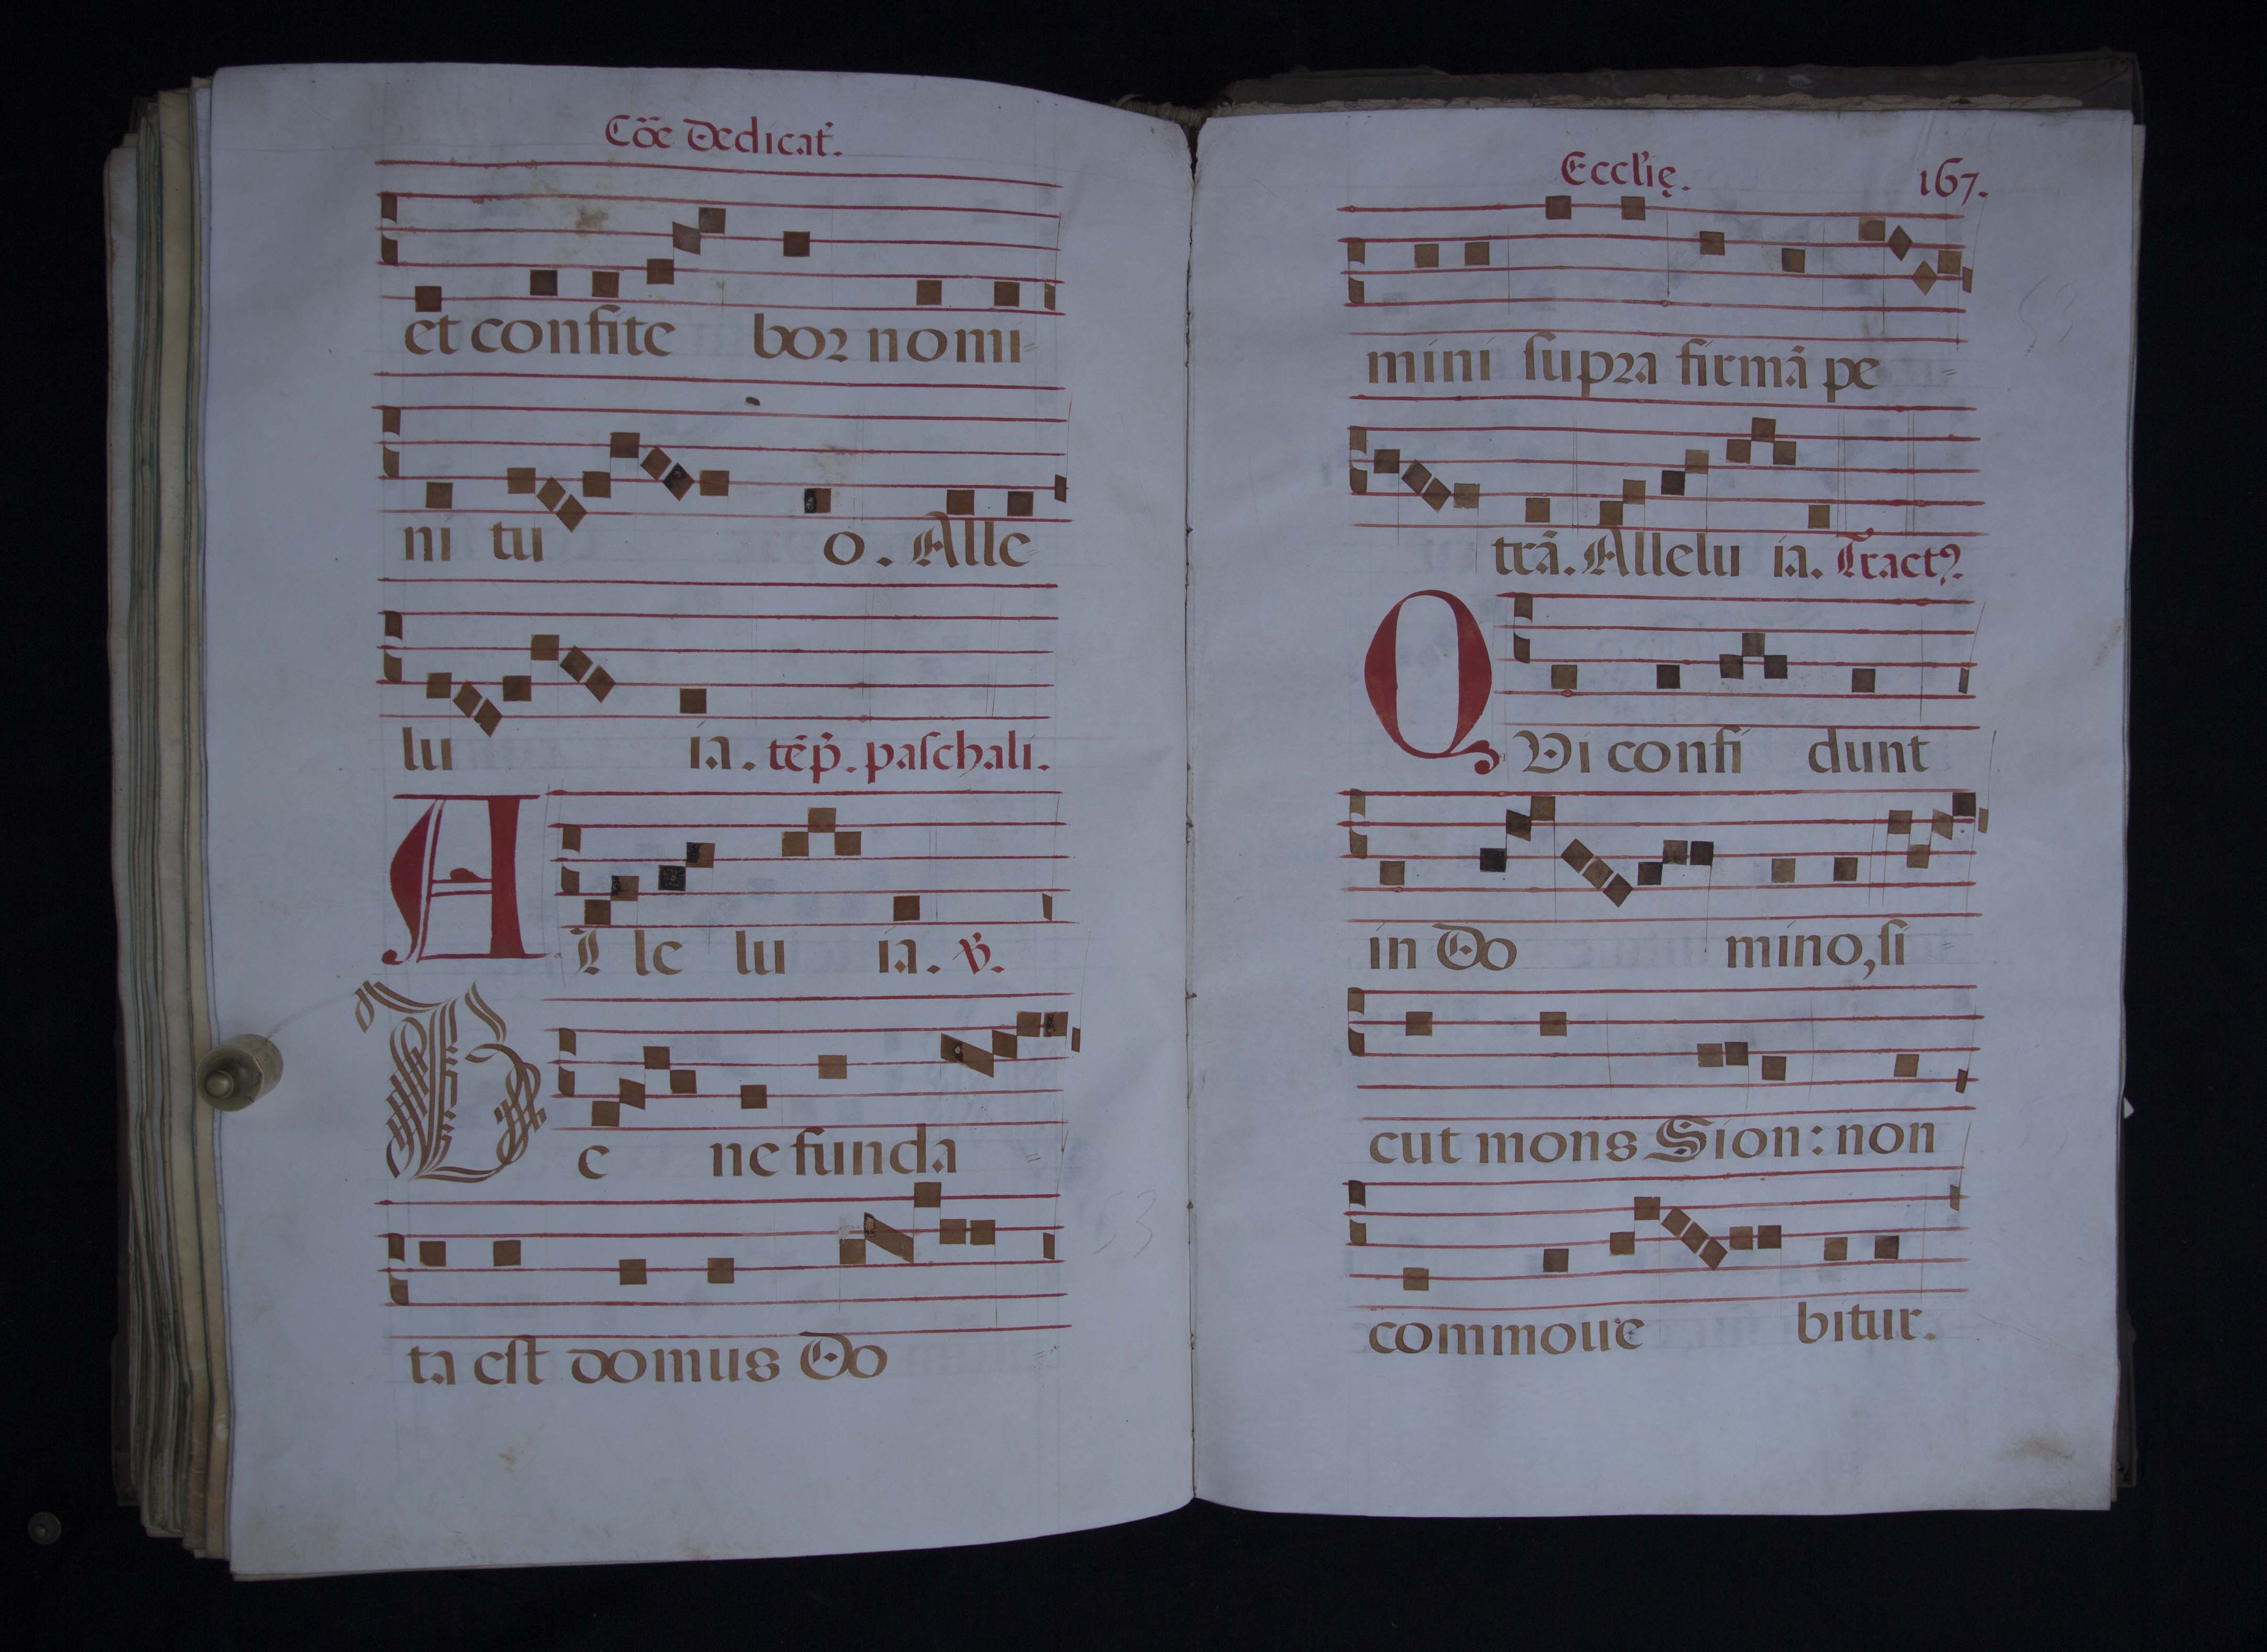 Cõe Dedicat.
et confite bor nomi=
ni tuo. Alle=
lu ia. tẽp̃. paschali.
Alle lu ia. ℣.
Be ne funda=
ta est domus Do=
Eccłię. 167.
mini supra firmã pe=
trã. Allelu ia. Tractꝰ.
QVi confi dunt
in Do mino, si
cut mons Sion: non
commoue bitur.
53